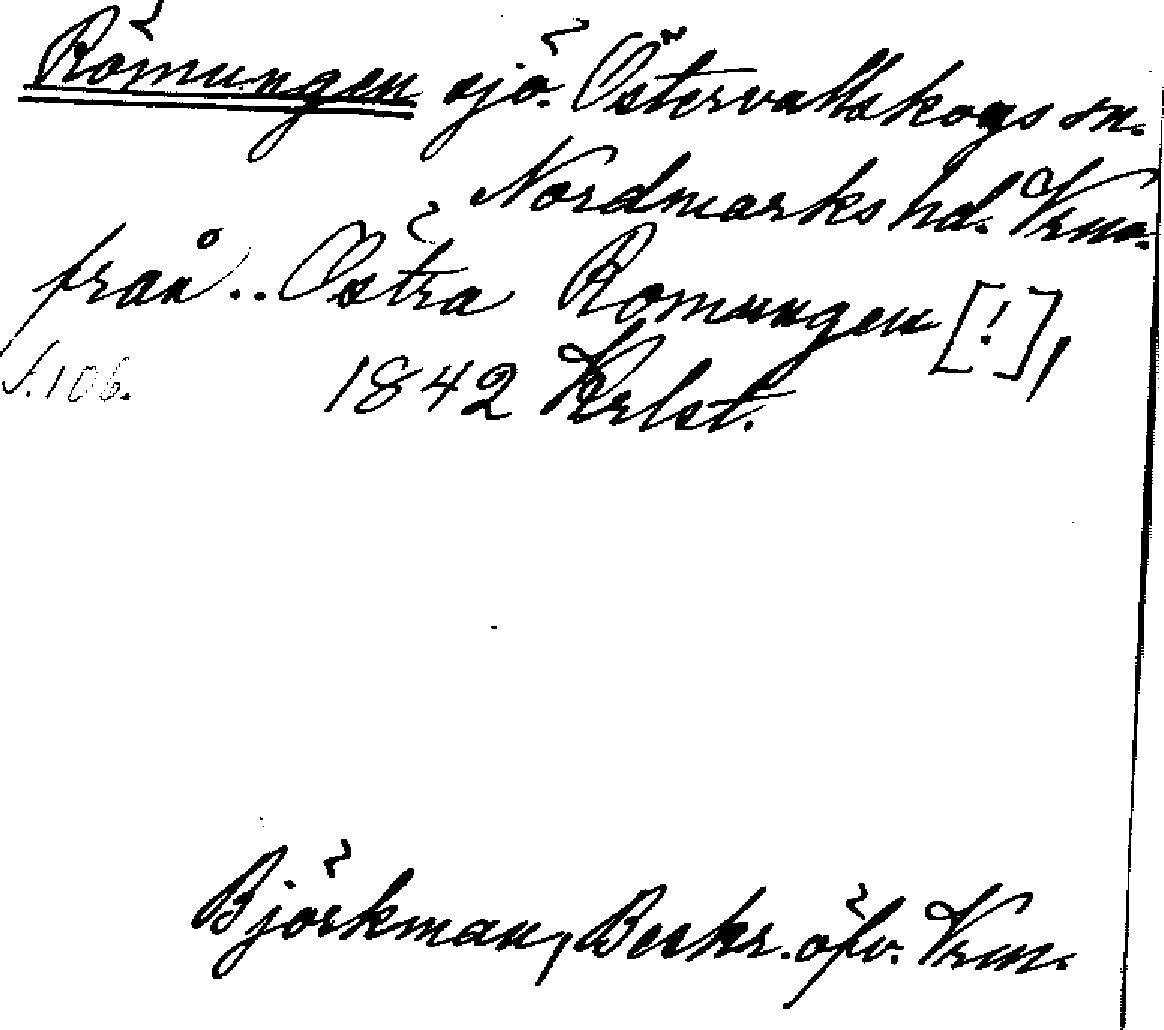 Römungen sjö. Östervallskogs sn.
Nordmarks hd. Vrml.
från .. Östra Romungen [!],
S. 106. 1842 Krlst.
Björkman, Beskr. öfv. Vrm.